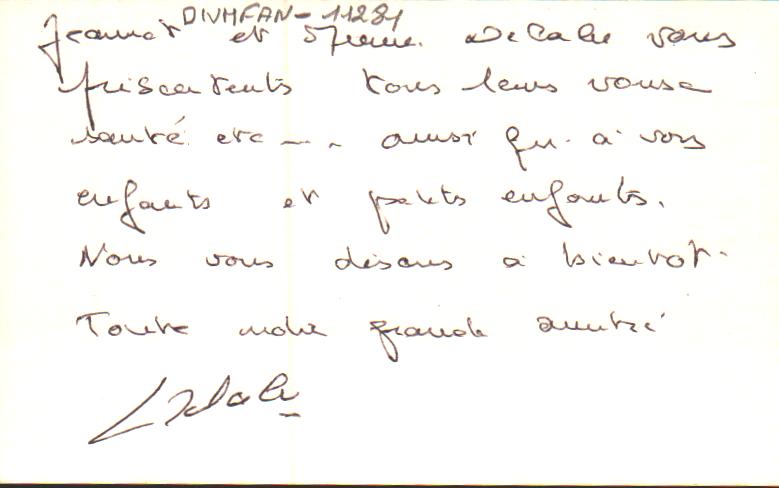 DIVHFAN-11281
Jeannot et Delahe vous
présentents tous leurs voeux
santé etc --- ainsi qu'à vos
enfants et petits enfants.
Nous vous disons à bientot.
Toute notre grande amitié